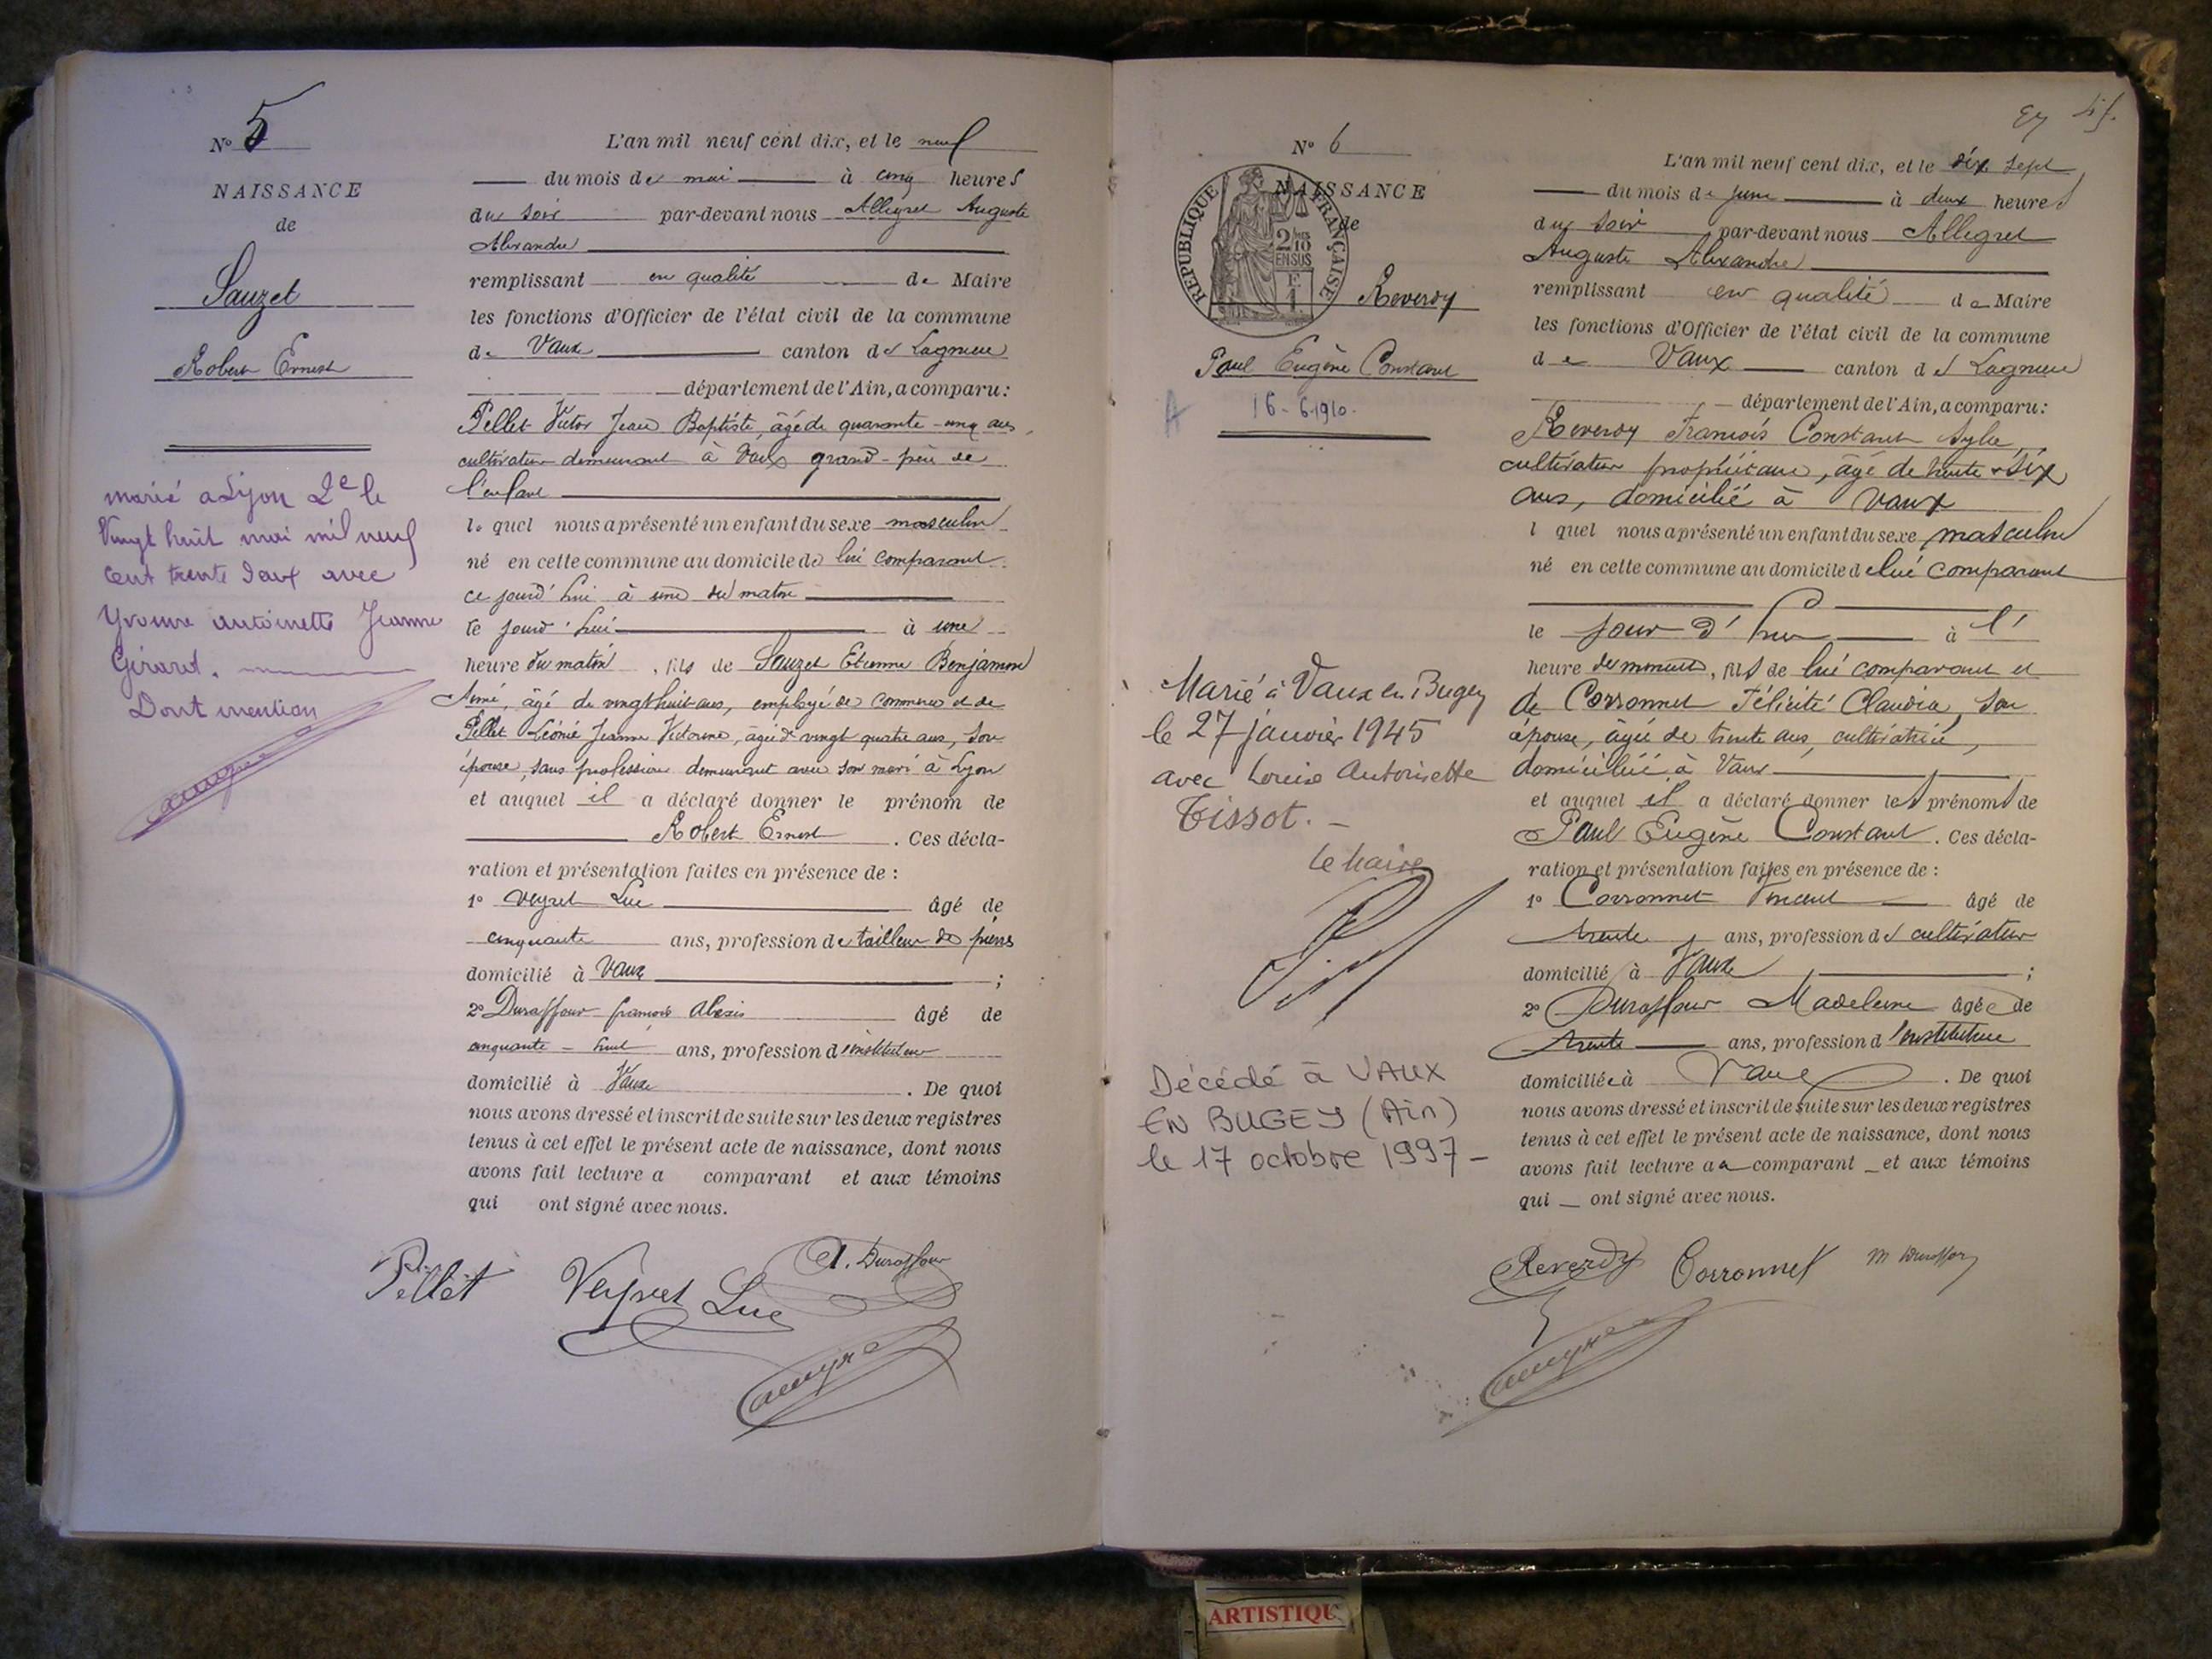 N° 5
NAISSANCE
de
Sauzet
Robert Ernest
marié a Lyon 2e le
Vingt huit mai mil neuf
cent trente deux avec
Yvonne antoinette Jeanne
Girard.
Dont mention
L'an mil neuf cent dix, et le neuf
du mois de mai à cinq heures
du soir par-devant nous Allegret Auguste
Alexandre
remplissant en qualité de Maire
les fonctions d'Officier de l'état civil de la commune
de Vaux canton de Lagnieu
département de l'Ain, a comparu:
Pellet Victor Jean Baptiste, âgé de quarante-cinq ans,
cultivateur demeurant à Vaux grand-père de
l'enfant
le quel nous a présenté un enfant du sexe masculin
né en cette commune au domicile de lui comparant
ce jourd'hui à une du matin
le jourd'hui à une
heure du matin, fils de Sauzet Etienne Benjamin
Aimé, âgé de vingt huit ans, employé de commerce et de
Pellet Léonie Jeanne Victorine, âgée de vingt quatre ans, son
épouse, sans profession demeurant avec son mari à Lyon
et auquel il a déclaré donner le prénom de
Robert Ernest. Ces décla-
ration et présentation faites en présence de :
1° Veyret Luc âgé de
cinquante ans, profession de tailleur de pierres
domicilié à Vaux ;
2° Duraffour françois Alexis âgé de
cinquante-huit ans, profession d'instituteur
domicilié à Vaux. De quoi
nous avons dressé et inscrit de suite sur les deux registres
tenus à cet effet le présent acte de naissance, dont nous
avons fait lecture a comparant et aux témoins
qui ont signé avec nous.
Pellet Veyret Luc A. Duraffour
N° 6
NAISSANCE
de
REPUBLIQUE FRANÇAISE
2/10
EN SUS
Reverdy
Paul Eugène Constant
16-6-1910.
Marié à Vaux en Bugey
le 27 janvier 1945
avec Louise Antoinette
Tissot. -
Le Maire
Décédé à VAUX
EN BUGEY (Ain)
le 17 octobre 1997 -
L'an mil neuf cent dix, et le dix sept
du mois de juin à deux heures
du soir par-devant nous Allegret
Auguste Alexandre
remplissant en qualité de Maire
les fonctions d'Officier de l'état civil de la commune
de Vaux canton de Lagnieu
département de l'Ain, a comparu:
Reverdy François Constant
cultivateur propriétaire, âgé de trente six
ans, domicilié à Vaux
l quel nous a présenté un enfant du sexe masculin
né en cette commune au domicile de lui comparant
le jour d'hui à l'
heure de minuit, fils de lui comparant et
de Corronnet Félicité Claudia, son
épouse, âgée de trente ans, cultivatrice,
domiciliée à Vaux
et auquel il a déclaré donner les prénoms de
Paul Eugène Constant. Ces décla-
ration et présentation faites en présence de :
1° Corronnet Vincent âgé de
trente ans, profession de cultivateur
domicilié à Vaux ;
2° Duraffour Madeleine âgée de
trente ans, profession d'institutrice
domiciliée à Vaux. De quoi
nous avons dressé et inscrit de suite sur les deux registres
tenus à cet effet le présent acte de naissance, dont nous
avons fait lecture au comparant et aux témoins
qui ont signé avec nous.
Reverdy Corronnet M Duraffour
ARTISTIQU